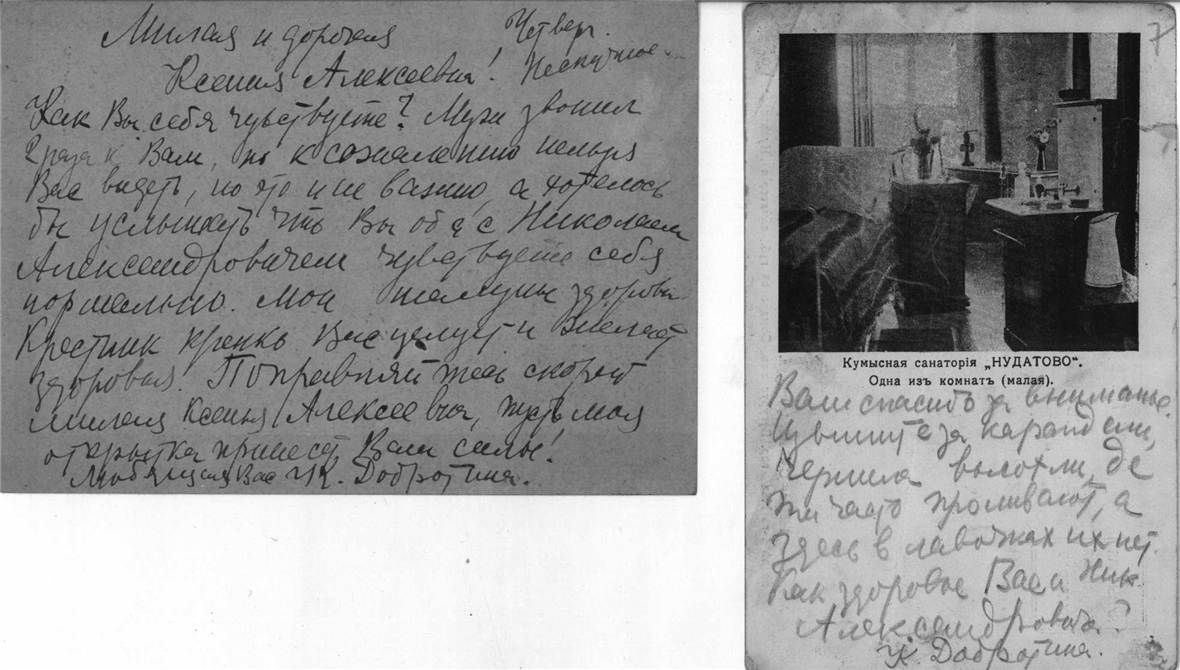 Милая и дорогая
Четверг.
Ксения Алексеевна! Нескучное.
Как Вы себя чувствуете? Муж звонил
2 раза к Вам, но к сожалению нельзя
Вас видеть, но это и не важно, а хотелось
бы услышать что Вы оба с Николаем
Александровичем чувствуете себя
нормально. Мои здоровы
Крестник крепко Вас целует и желает
здоровья. Поправляйтесь скорей
милая Ксения Алексеевна, пусть моя
открытка принесет Вам силы!
Любящая Вас Добротина.
7
Кумысная санаторія „НУДАТОВО“.
Одна изъ комнатъ (малая).
Вам спасибо за вниманье.
Извините за карандаш,
чернила высохли, де
ти часто проливают, а
здесь в лавочках их нет.
Как здоровье Ваше и Ник.
Александровича?
Добротина.